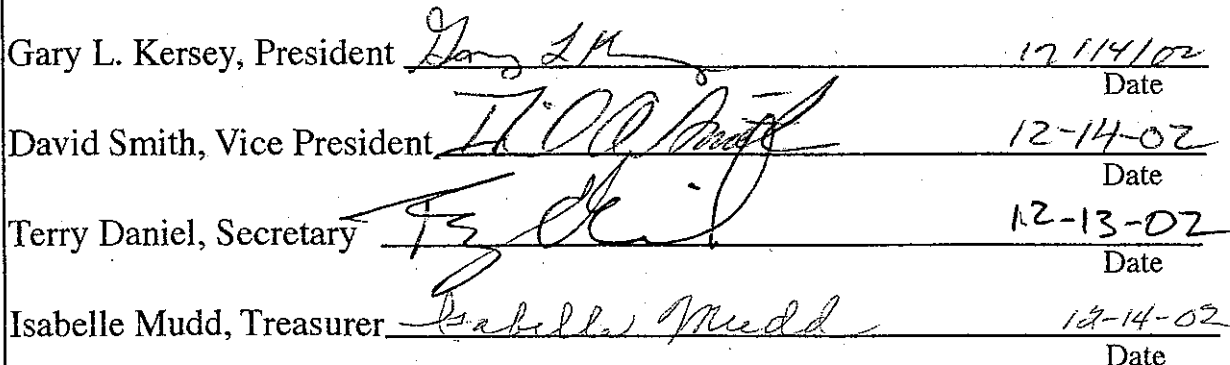 Gary L. Kersey, President Gary L K 12/14/02
Date
David Smith, Vice President Smith 12-14-02
Date
Terry Daniel, Secretary 12-13-02
Date
Isabelle Mudd, Treasurer Isabelle Mudd 12-14-02
Date